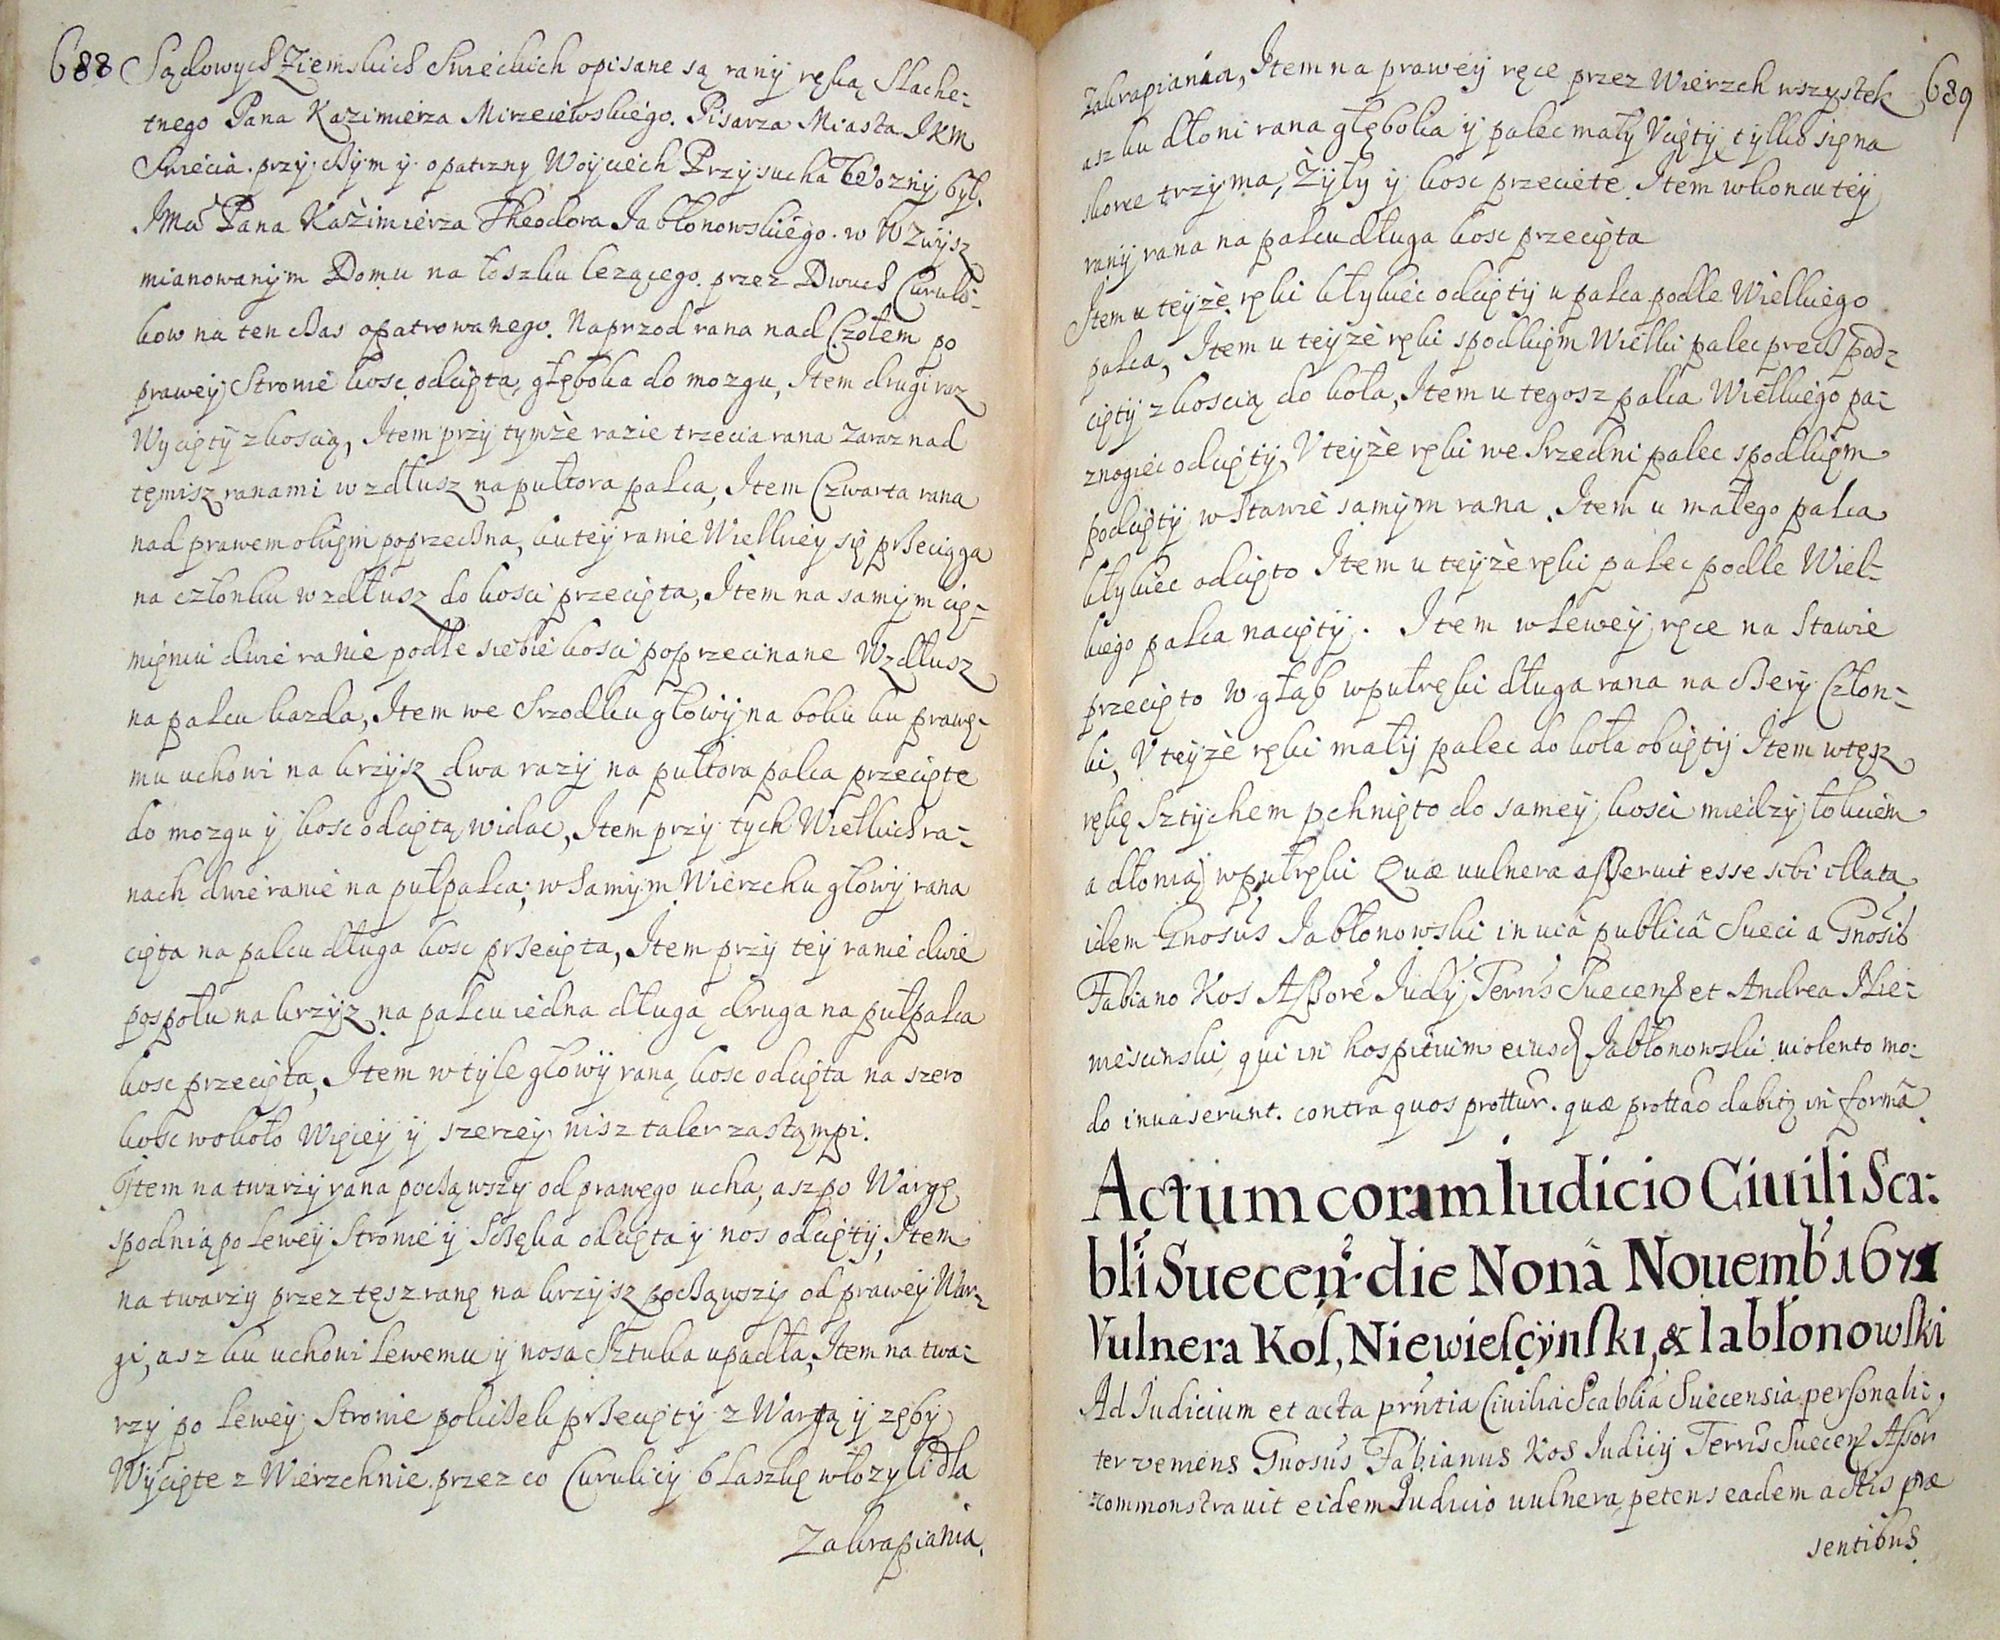 688
Sądowych Ziemskich Swieckich opisane są rany ręką Slache-
tnego Pana Kazimierza Mirzeiewskiego. Pisarza Miasta JKM
Swiecia. przy ktym y opatrzny Woyciech Przysucha Wozny był.
JMci Pana Każimierza Theodora Jabłonowskiego. w Wzwysz
mianowanym Domu na łoszku lezącego. przez Dwuch Curuli-
kow na ten czas opatrowanego. Naprzod rana nad Czołem po
prawey Stronie kosc odcięta, głęboka do mozgu, Item drugi raz
Wycięty z koscią, Item przy tymże razie trzecia rana zaraz nad
temisz ranami wzdłusz na pułtora palca, Item Czwarta rana
nad prawem okiem poprzeczna, ku tey ranie Wielkiey się przeciąga
na członku wzdłusz do kosci przecięta, Item na samym cie-
mięniu dwie ranie podle siebie kosci poprzecinane Wzdłusz
na palcu kazda, Item we Srzodku głowy na boku ku prawe-
mu uchowi na krzysz dwa razy na pułtora palca przecięte
do mozgu y kosc odciętą widac, Item przy tych Wielkich ra-
nach dwie ranie na pułpalca; w samym Wierzchu głowy rana
cięta na palcu długa kosc przecięta, Item przy tey ranie dwie
pospołu na krzyz na palcu iedna długa druga na pułpalca
kosc przecięta, Item w tyle głowy rana, kosc odcięta na szero
kosc wokoło Więcey y szerzey nisz taler zastąmpi.
Item na twarzy rana począwszy od prawego ucha, asz po Wargę
spodnią po lewey Stronie y Sczęka odcięta y nos odcięty, Item
na twarzy przez tęsz ranę na krzysz począwszy od prawey War-
gi, asz ku uchowi lewemu y nosa Sztuka upadła, Item na twa-
rzy po lewey Stronie policzek przecięty z Wargą y zęby
Wycięte z Wierzchnie. przez co Curulicy blaszkę włozyli dla
Zakrapiania.
689
zakrapiania, Item na prawey ręce przez Wierzch wszystek
asz ku dłoni rana głęboka y palec mały Ucięty tylko się na
skorce trzyma, Żyły y kosc przecięte. Item w koncu tey
rany rana na palcu długa kosc przecięta
Item u teyże ręki kłykiec odcięty u palca podle Wielkiego
palca, Item u teyże ręki spodkiem Wielki palec precz pod-
cięty z koscią do koła, Item u tegosz palca Wielkiego pa-
znogiec odcięty, U teyże ręki we Srzedni palec spodkiem
podcięty w Stawie samym rana. Item u małego palca
kłykiec odcięto Item u teyże ręki palec podle Wiel-
kiego palca nacięty. Item w lewey ręce na Stawie
przecięto w głąb w pułręki długa rana na sztery Człon-
ki, U teyże ręki mały palec do koła obcięty Item w tęsz
rękę Sztychem pchnięto do samey kosci miedzy łokciem
a dłonią w pułręki Quæ vulnera asseruit esse sibi illata
idem Gnosus Jabłonowski in viâ publicâ Sueci a Gnosis
Fabiano Kos Assore Judy Terris Suecens et Andrea Nie-
wiescinski, qui in hospitium eiusd Jabłonowski violento mo-
do invaserunt. contra quos prottur. quæ prottao dabitz in formâ.
Actum coram Iudicio Ciuili Sca-
bli Suecen. die Nonâ Nouemb 1671
Vulnera Kos, Niewiescÿnski, & Iabłonowski
Ad Judicium et acta prntia Civilia Scablia Suecensia personali-
ter veniens Gnosus Fabianus Kos Judicy Terris Suecen Assor
commonstravit eidem Judicio vulnera, petens eadem actis præ
sentibus